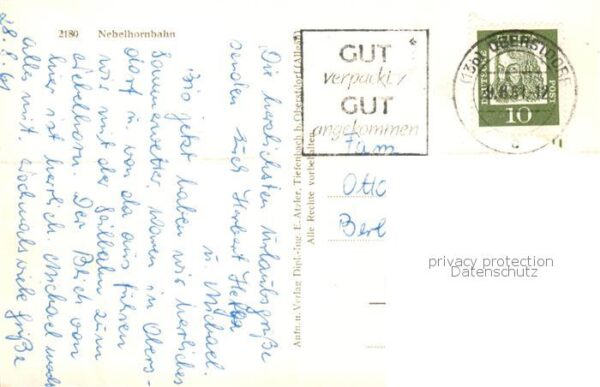 2180 Nebelhornbahn
28.8.61
Die herzlichsten Urlaubsgrüße
senden Euch Herbert Hella
u. Michael.
Bis jetzt haben wir herrliches
Sommerwetter. Waren in Oberst-
dorf u. von da aus fuhren
wir mit der Seilbahn zum
Nebelhorn. Der Blick von
hier ist herrlich. Michael macht
alles mit. Nochmals viele Grüße
Aufn. u. Verlag Dipl.-Ing. E. Atzler, Tiefenbach b. Oberstdorf (Allgäu)
Alle Rechte vorbehalten
GUT
verpackt /
GUT
angekommen
OBERSTDORF
DEUTSCHE
POST
10
Fam
Otto
Berl
privacy protection
Datenschutz